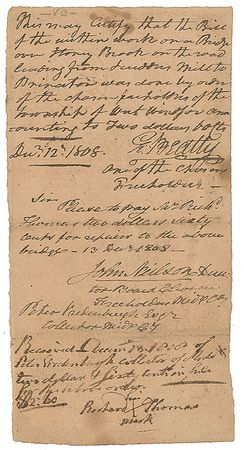 This may Certify that the Bill
of the within work on a Bridge
over Stony Brook on the road
leading from Scudders Mills to
Princeton was done by order
of the chosen freeholders of the
township of West Windsor am
ounting to two dollars 60 cts
Decr. 12th 1808. E Beatty
One of the Chosen
Freeholders
Sir
Please to pay Mr Richd.
Thomas two dollars sixty
cents for repairs to the above
bridge - 13 Decr 1808 -
John Wilson Direc
for Board Chosen
Freeholders Midd Cty
Peter Vredenburgh Esqr
Collector Midd Cty
Received December 13 1808 of
Peter Vredenburgh Collector of
two dollars & Sixty Cents in full
of order
$2:60
Richard X Thomas
mark